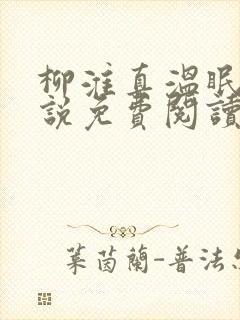 柳淮真溫眠
說免費閱讀
葉茵蘭-普法